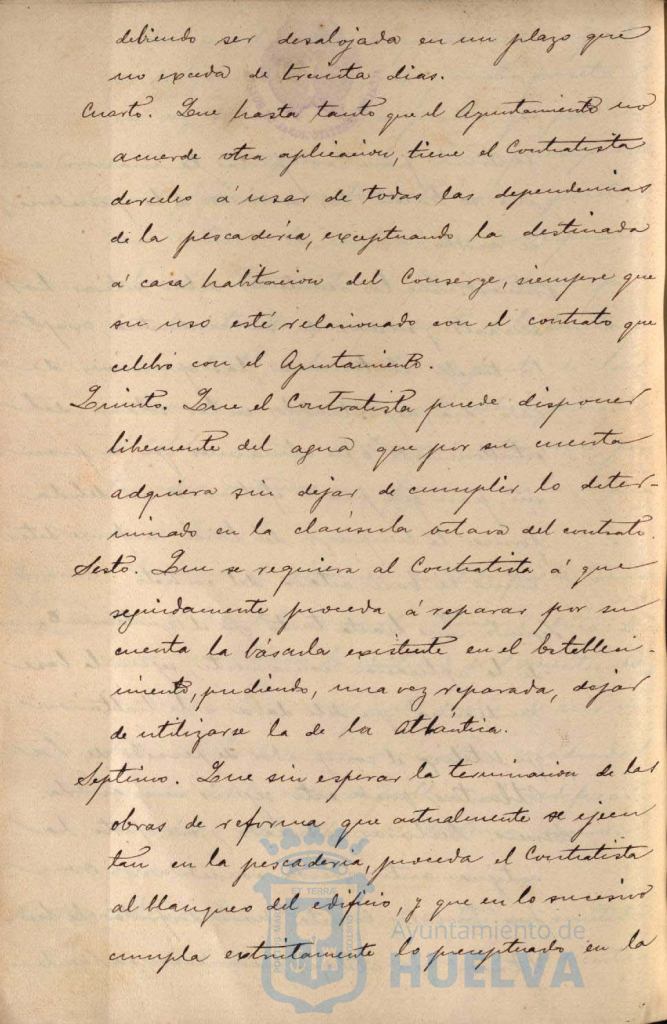 debiendo ser desalojada en un plazo que
no exceda de treinta dias.
Cuarto. Que hasta tanto que el Ayuntamiento no
acuerde otra aplicacion, tiene el Contratista
derecho á usar de todas las dependencias
de la pescaderia, exceptuando la destinada
á casa habitacion del Conserge, siempre que
su uso esté relacionado con el contrato que
celebró con el Ayuntamiento.
Quinto. Que el Contratista puede disponer
libremente del agua que por su cuenta
adquiera sin dejar de cumplir lo deter-
minado en la cláusula octava del contrato.
Sesto. Que se requiera al Contratista á que
seguidamente proceda á reparar por su
cuenta la báscula existente en el Estableci-
miento, pudiendo, una vez reparada, dejar
de utilizarse la de la Atlántica.
Septimo. Que sin esperar la terminacion de las
obras de reforma que actualmente se ejecu
tan en la pescaderia, proceda el Contratista
al blanqueo del edificio, y que en lo sucesivo
cumpla extrictamente lo preceptuado en la
Ayuntamiento de
HUELVA